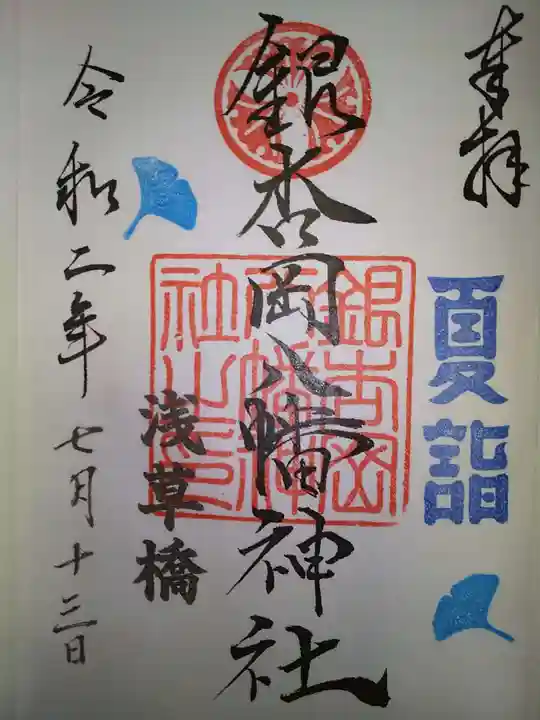 奉拝
夏詣
銀杏岡八幡神社
銀杏岡
八幡神
社之印
浅草橋
令和二年七月十三日